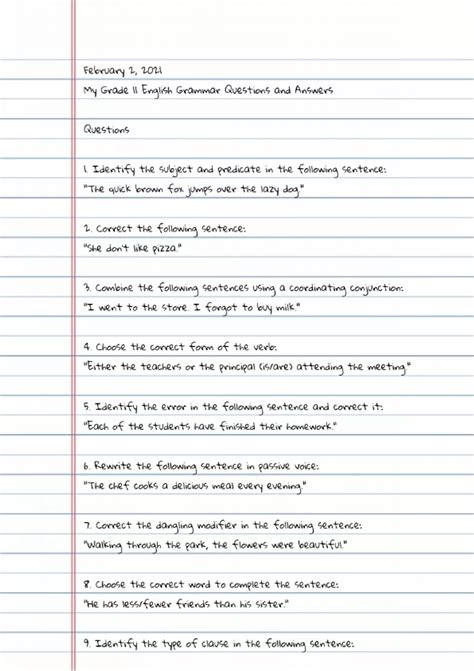 February 2, 2021
My Grade 11 English Grammar Questions and Answers
Questions
1. Identify the subject and predicate in the following sentence:
"The quick brown fox jumps over the lazy dog."
2. Correct the following sentence:
"She don't like pizza."
3. Combine the following sentences using a coordinating conjunction:
"I went to the store. I forgot to buy milk."
4. Choose the correct form of the verb:
"Either the teachers or the principal (is/are) attending the meeting."
5. Identify the error in the following sentence and correct it:
"Each of the students have finished their homework."
6. Rewrite the following sentence in passive voice:
"The chef cooks a delicious meal every evening."
7. Correct the dangling modifier in the following sentence:
"Walking through the park, the flowers were beautiful."
8. Choose the correct word to complete the sentence:
"He has less/fewer friends than his sister."
9. Identify the type of clause in the following sentence: